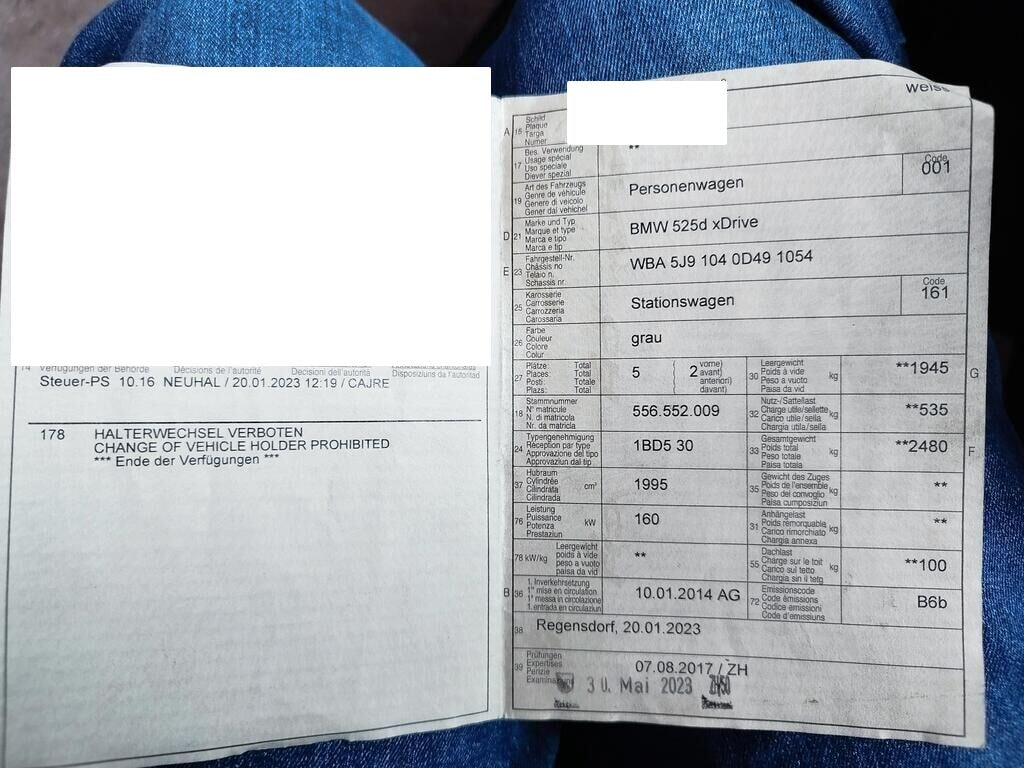 14 Verfügungen der Behörde Décisions de l'autorité Decisioni dell'autorità Disposiziuns da l'autoritad
Steuer-PS 10.16 NEUHAL / 20.01.2023 12:19 / CAJRE
178 HALTERWECHSEL VERBOTEN
CHANGE OF VEHICLE HOLDER PROHIBITED
*** Ende der Verfügungen ***
weiss
A 15 Schild
Plaque
Targa
Numer
17 Bes. Verwendung
Usage spécial
Uso speciale
Diever spezial
**
19 Art des Fahrzeugs
Genre de véhicule
Genere di veicolo
Gener dal vehichel
Personenwagen
Code
001
D 21 Marke und Typ
Marque et type
Marca e tipo
Marca e tip
BMW 525d xDrive
E 23 Fahrgestell-Nr.
Châssis no
Telaio n.
Schassis nr.
WBA 5J9 104 0D49 1054
25 Karosserie
Carrosserie
Carrozzeria
Carossaria
Stationswagen
Code
161
26 Farbe
Couleur
Colore
Colur
grau
27 Plätze: Total
Places: Total
Posti: Totale
Plazs: Total
5
2
vorne)
avant)
anteriori)
davant)
30 Leergewicht
Poids à vide
Peso a vuoto
Paisa da vid
kg
**1945
G
18 Stammnummer
N° matricule
N. di matricola
Nr. da matricla
556.552.009
32 Nutz-/Sattellast
Charge utile/sellette
Carico utile/sella
Chargia utila/sella
kg
**535
24 Typengenehmigung
Réception par type
Approvazione del tipo
Approvaziun dal tip
1BD5 30
33 Gesamtgewicht
Poids total
Peso totale
Paisa totala
kg
**2480
F
37 Hubraum
Cylindrée
Cilindrata
Cilindrada
cm³
1995
35 Gewicht des Zuges
Poids de l'ensemble
Peso del convoglio
Paisa cumposiziun
kg
**
76 Leistung
Puissance
Potenza
Prestaziun
kW
160
31 Anhängelast
Poids remorquable
Carico rimorchiato
Chargia annexa
kg
**
78 kW/kg
Leergewicht
poids à vide
peso a vuoto
paisa da vid
**
55 Dachlast
Charge sur le toit
Carico sul tetto
Chargia sin il tetg
kg
**100
B 36 1. Inverkehrsetzung
1re mise en circulation
1a messa in circolazione
1. entrada en circulaziun
10.01.2014 AG
72 Emissionscode
Code émissions
Codice emissioni
Code d'emissiuns
B6b
38 Regensdorf, 20.01.2023
39 Prüfungen
Expertises
Perizie
Examinaziuns
07.08.2017 / ZH
30. Mai 2023